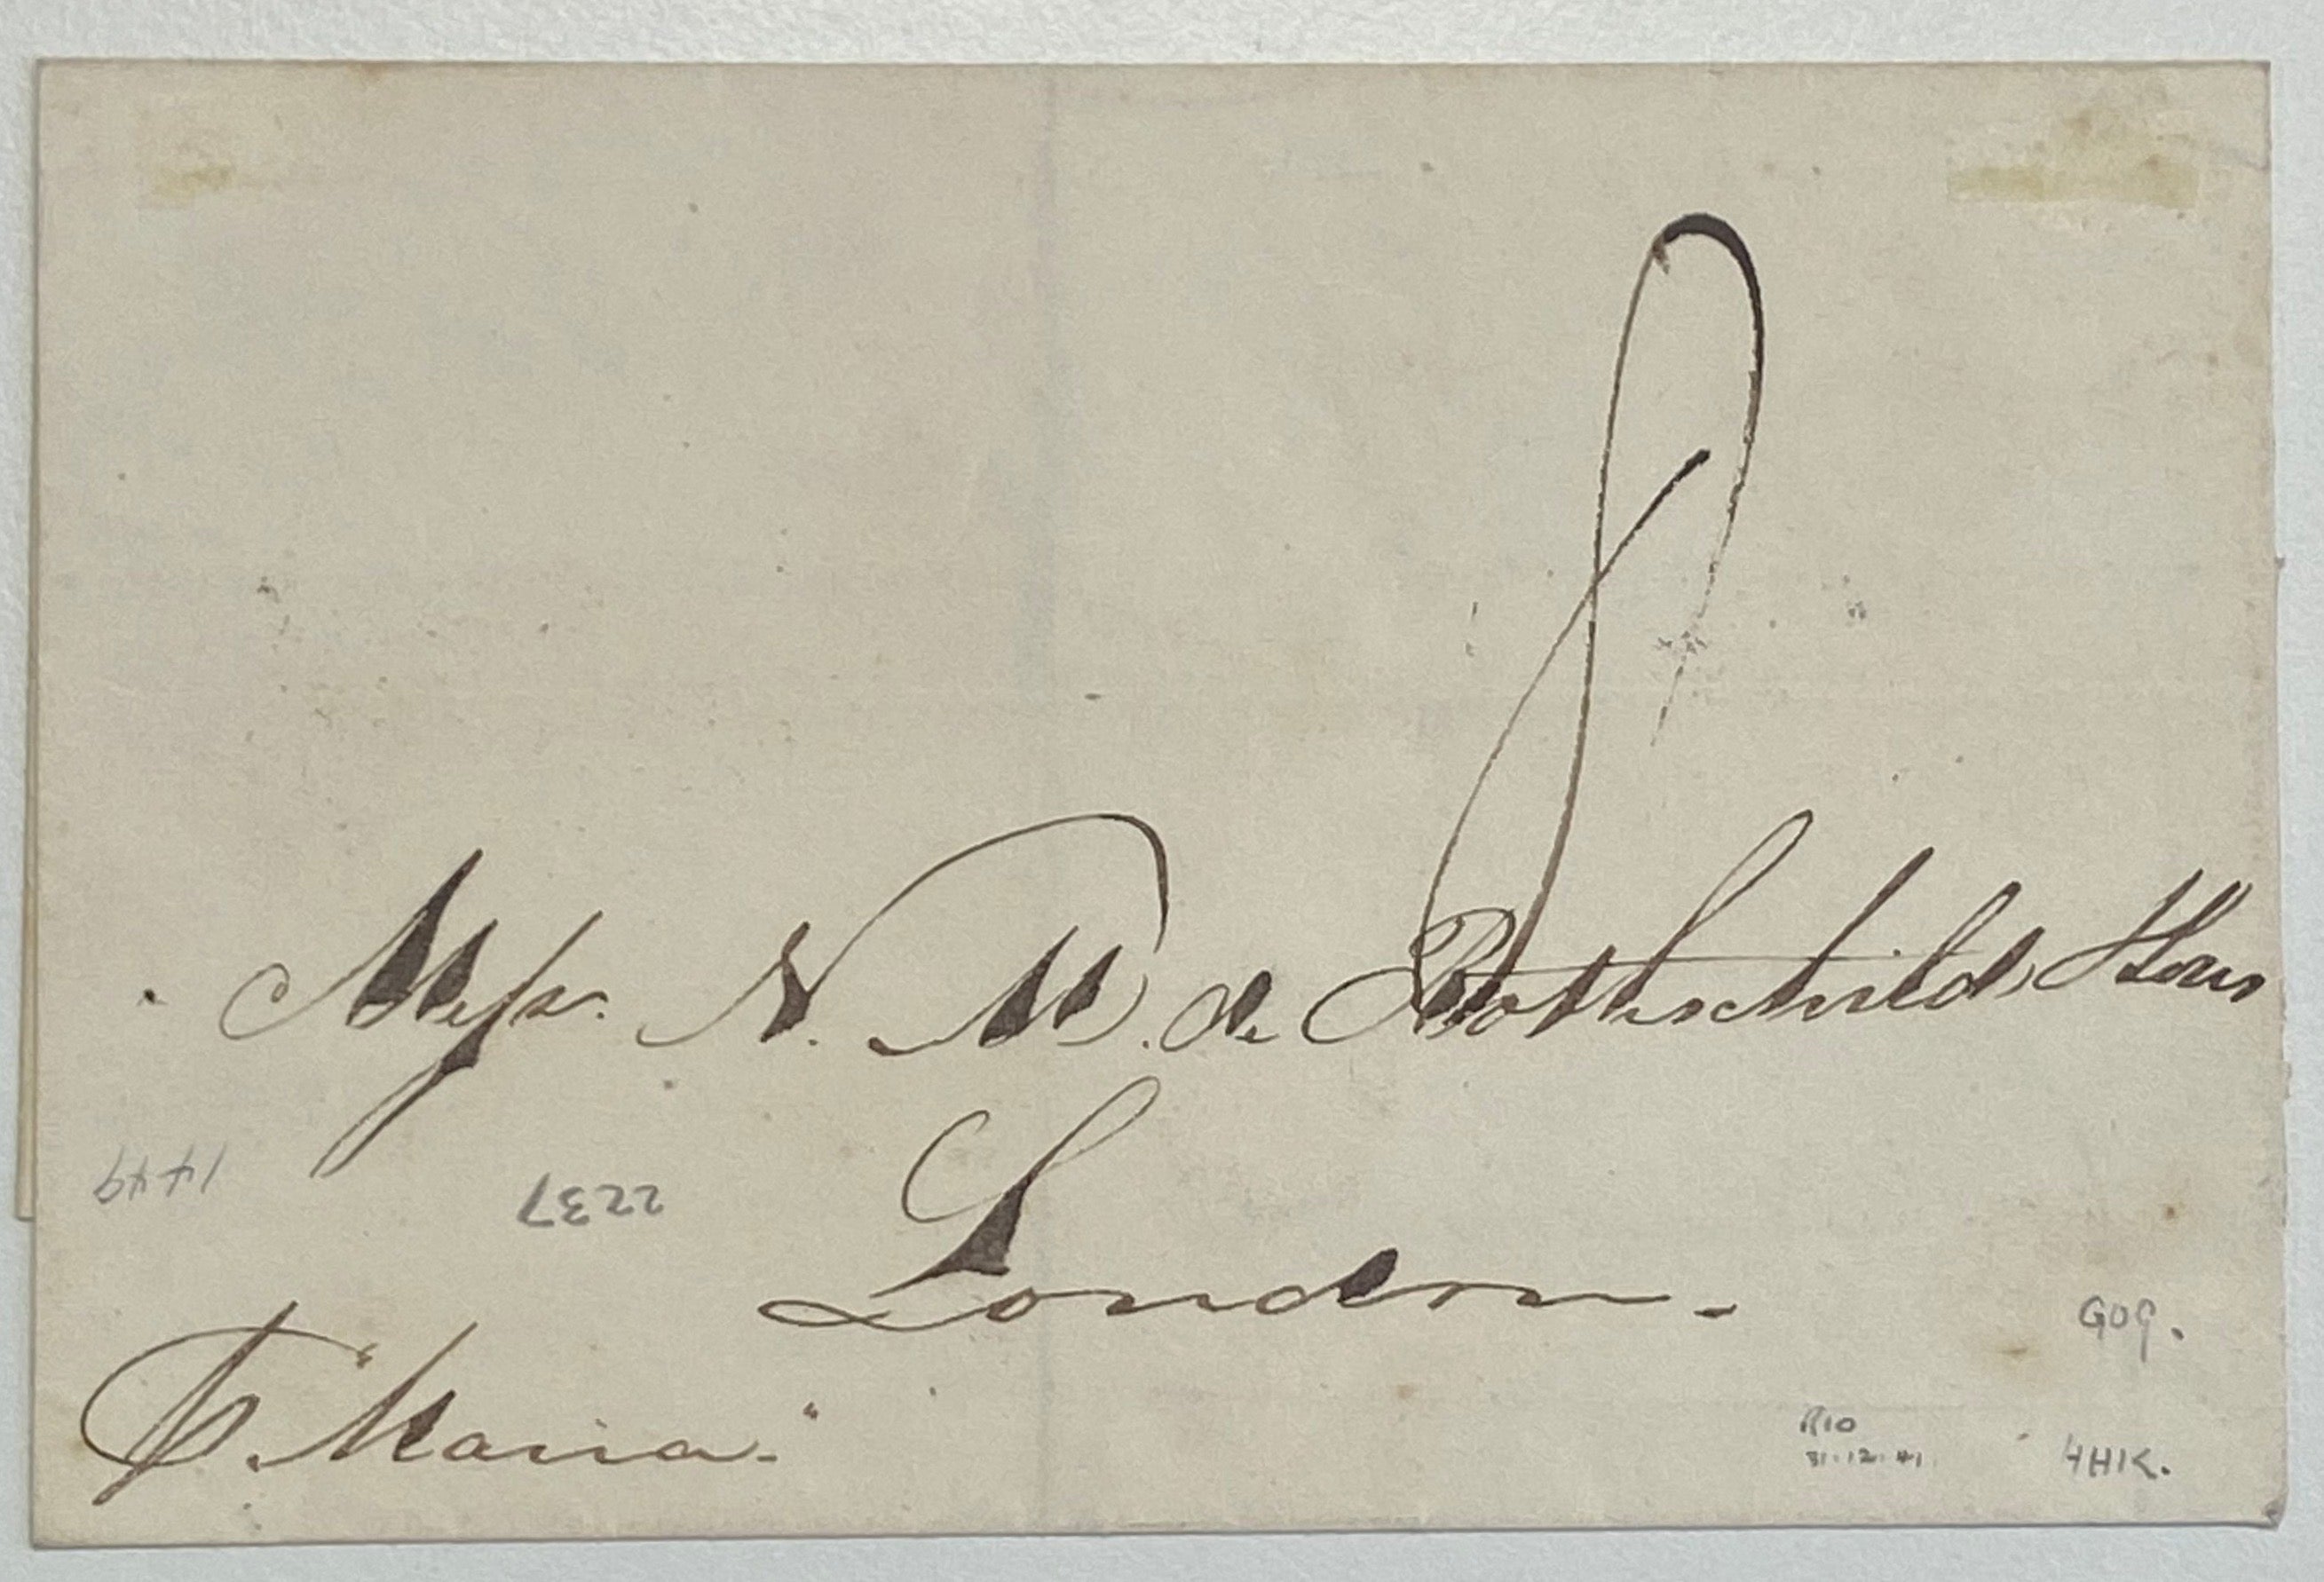 8
Messrs. N. M. de Rothschild Sons
1449
2237
London.
"Maria."
RIO
31.12.41
4HK.